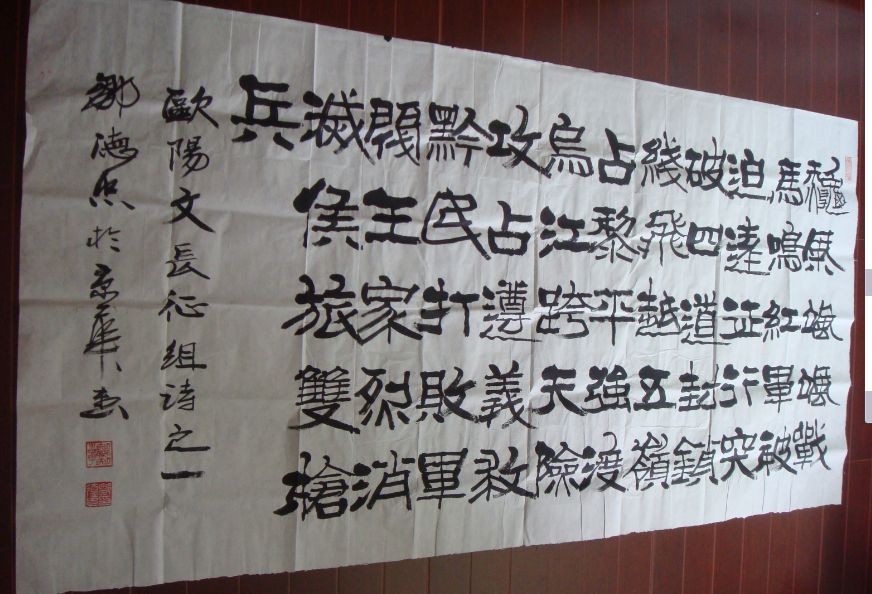 龝風颯颯戰
馬鳴紅軍被
迫遠征行突
破四道封鎖
綫飛越五嶺
占黎平強渡
烏江跨天險
攻占遵義救
黔民打敗軍
閥王家烈消
滅侯旅雙槍
兵
歐陽文長征組詩之一
鄒德忠於京華書